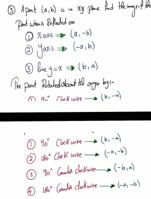 ③ A point (a,b) is in xy plane find the image of the
point when is Reflected on
① x axis ⇒ (a,-b)
② y axis ⇒ (-a,b)
③ line y=x ⇒ (b,a)
The point Rotated about the origin by:-
① 90° Clockwise → (b,-a)
① 90° Clockwise → (b,-a)
② 180° Clockwise → (-a,-b)
③ 90° clockwise → (-b,a)
④ 180° clockwise → (-a,-b)